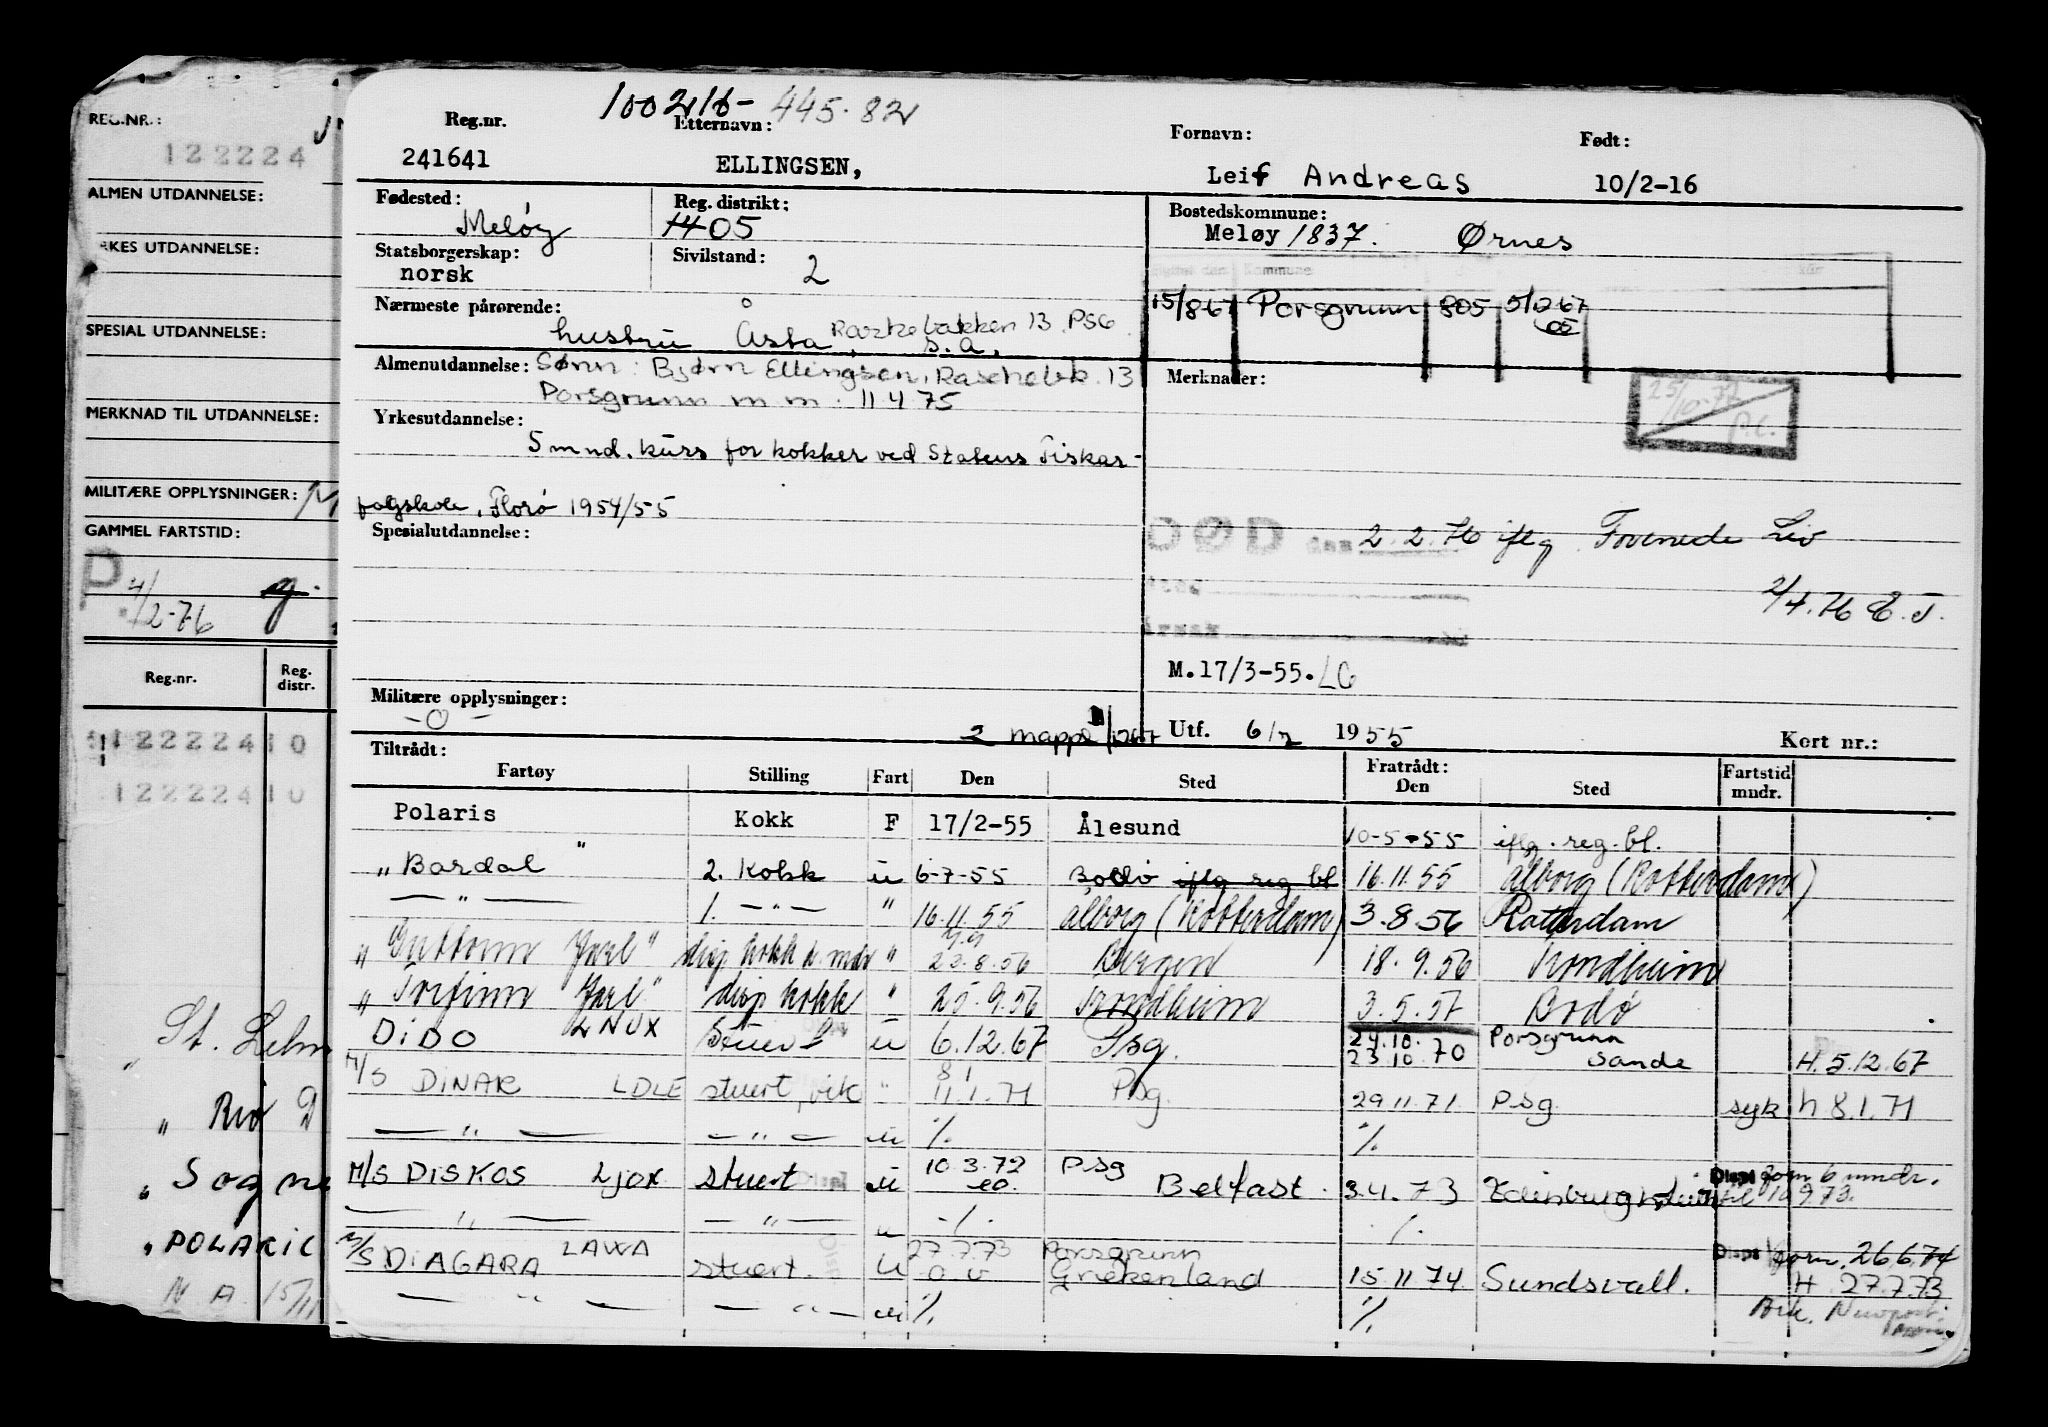 REG.NR.:
122224
ALMEN UTDANNELSE:
RKES UTDANNELSE:
SPESIAL UTDANNELSE:
MERKNAD TIL UTDANNELSE:
MILITÆRE OPPLYSNINGER: M
GAMMEL FARTSTID:
P. 4/2-76
Reg.nr. Reg. distr.
122224 10
122224 10
" Rio D
" Sogne
" POLARIC
N A 15/11
100216- 445.82
Reg.nr. Etternavn: Fornavn: Født:
241641 ELLINGSEN, Leif Andreas 10/2-16
Fødested: Reg. distrikt: Bostedskommune:
Meløy 1405 Meløy 1837. Ørnes
Statsborgerskap: Sivilstand: 2
norsk
Kommune
15/8 67 Porsgrunn 805 5/12 67
05
Nærmeste pårørende:
hustru Åsta, Raskebakken 13 PSG
s.a.
Almenutdannelse: Sønn: Bjørn Ellingsen, Raschebk. 13
Porsgrunn m m. 11 4 75
Merknader:
25/10-72
p.c.
Yrkesutdannelse:
5 mnd. kurs for kokker ved Statens Fiskar-
fagskole, Florø 1954/55
Spesialutdannelse:
DØD den 2.2.76 iflg. Forenede Liv
2/4.76 E.J.
Årsak
M.17/3-55. LG
Militære opplysninger:
-0-
2 mappe 1267 Utf. 6/7 1955 Kort nr.:
Tiltrådt: Fratrådt:
Fartøy Stilling Fart Den Sted Den Sted Fartstid mndr.
Polaris " Kokk F 17/2-55 Ålesund 10-5-55 iflg. reg. bl.
" Bardal 2. Kokk u 6-7-55 Bodø iflg reg bl 16.11.55 Ålborg (Rotterdam)
— " — 1. — " — " 16.11.55 Ålborg (Rotterdam) 3.8.56 Rotterdam
" Guttorm Jarl" disp kokk u. mdr " 23.8.56 Bergen 18.9.56 Trondheim
" Torfinn Jarl" disp kokk " 25.9.56 Trondheim 3.5.57 Bodø
DiDO LNUX Stuert u 6.12.67 Psg. 24.10. Porsgrunn
23.10.70 Sande H.5.12.67
M/S DINAR LDLE stuert, vik " 8/ 11.1.71 Psg. 29.11.71 Psg. syk h 8.1.71
— " — — " — u % %
M/S DISKOS LJOX stuert u 10.3.72 Psg Displ form 6 mndr.
eo. Belfast. 3.4.73 Edinburgh til 10.9.73.
— " — — " — u -/. ./.
M/S DIAGARA LAWA stuert. U 27.7.73 Porsgrunn Displ form. 26.6.74
o.v Griekenland 15.11.74 Sundsvall. H. 27.7.73
— " — — " — u % % Ark. Newport.